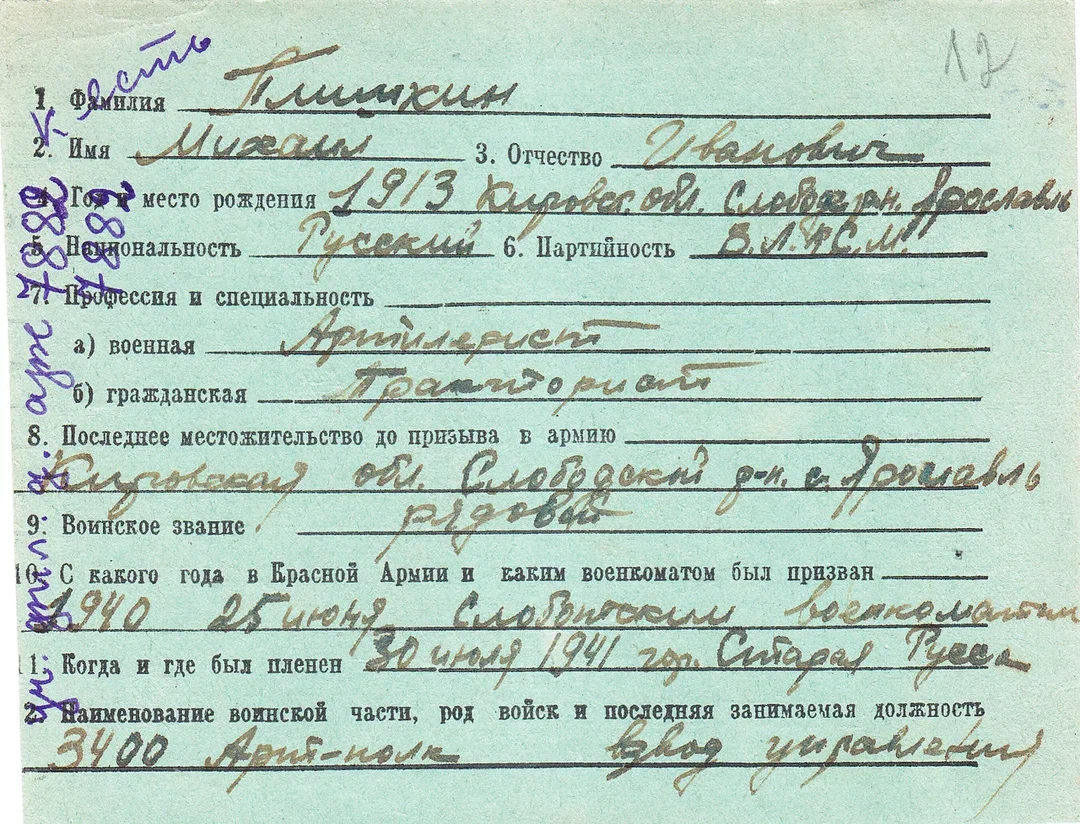 12
к. есть
1. Фамилия Плишкин
2. Имя Михаил 3. Отчество Иванович
4. Год и место рождения 1913 Кировск. обл. Слободс. р-н. Ярославль
5. Национальность Русский 6. Партийность В.Л.К.С.М.
7. Профессия и специальность
а) военная Артилерист
б) гражданская Тракторист
8. Последнее местожительство до призыва в армию
Кировская обл. Слободской р-н. с. Ярославль
9. Воинское звание рядовой
10. С какого года в Красной Армии и каким военкоматом был призван
1940 25 июня Слободским военкоматом
11. Когда и где был пленен 30 июля 1941 гор. Старая Русса
12. Наименование воинской части, род войск и последняя занимаемая должность
3400 Арт-полк взвод управления
7882
7889